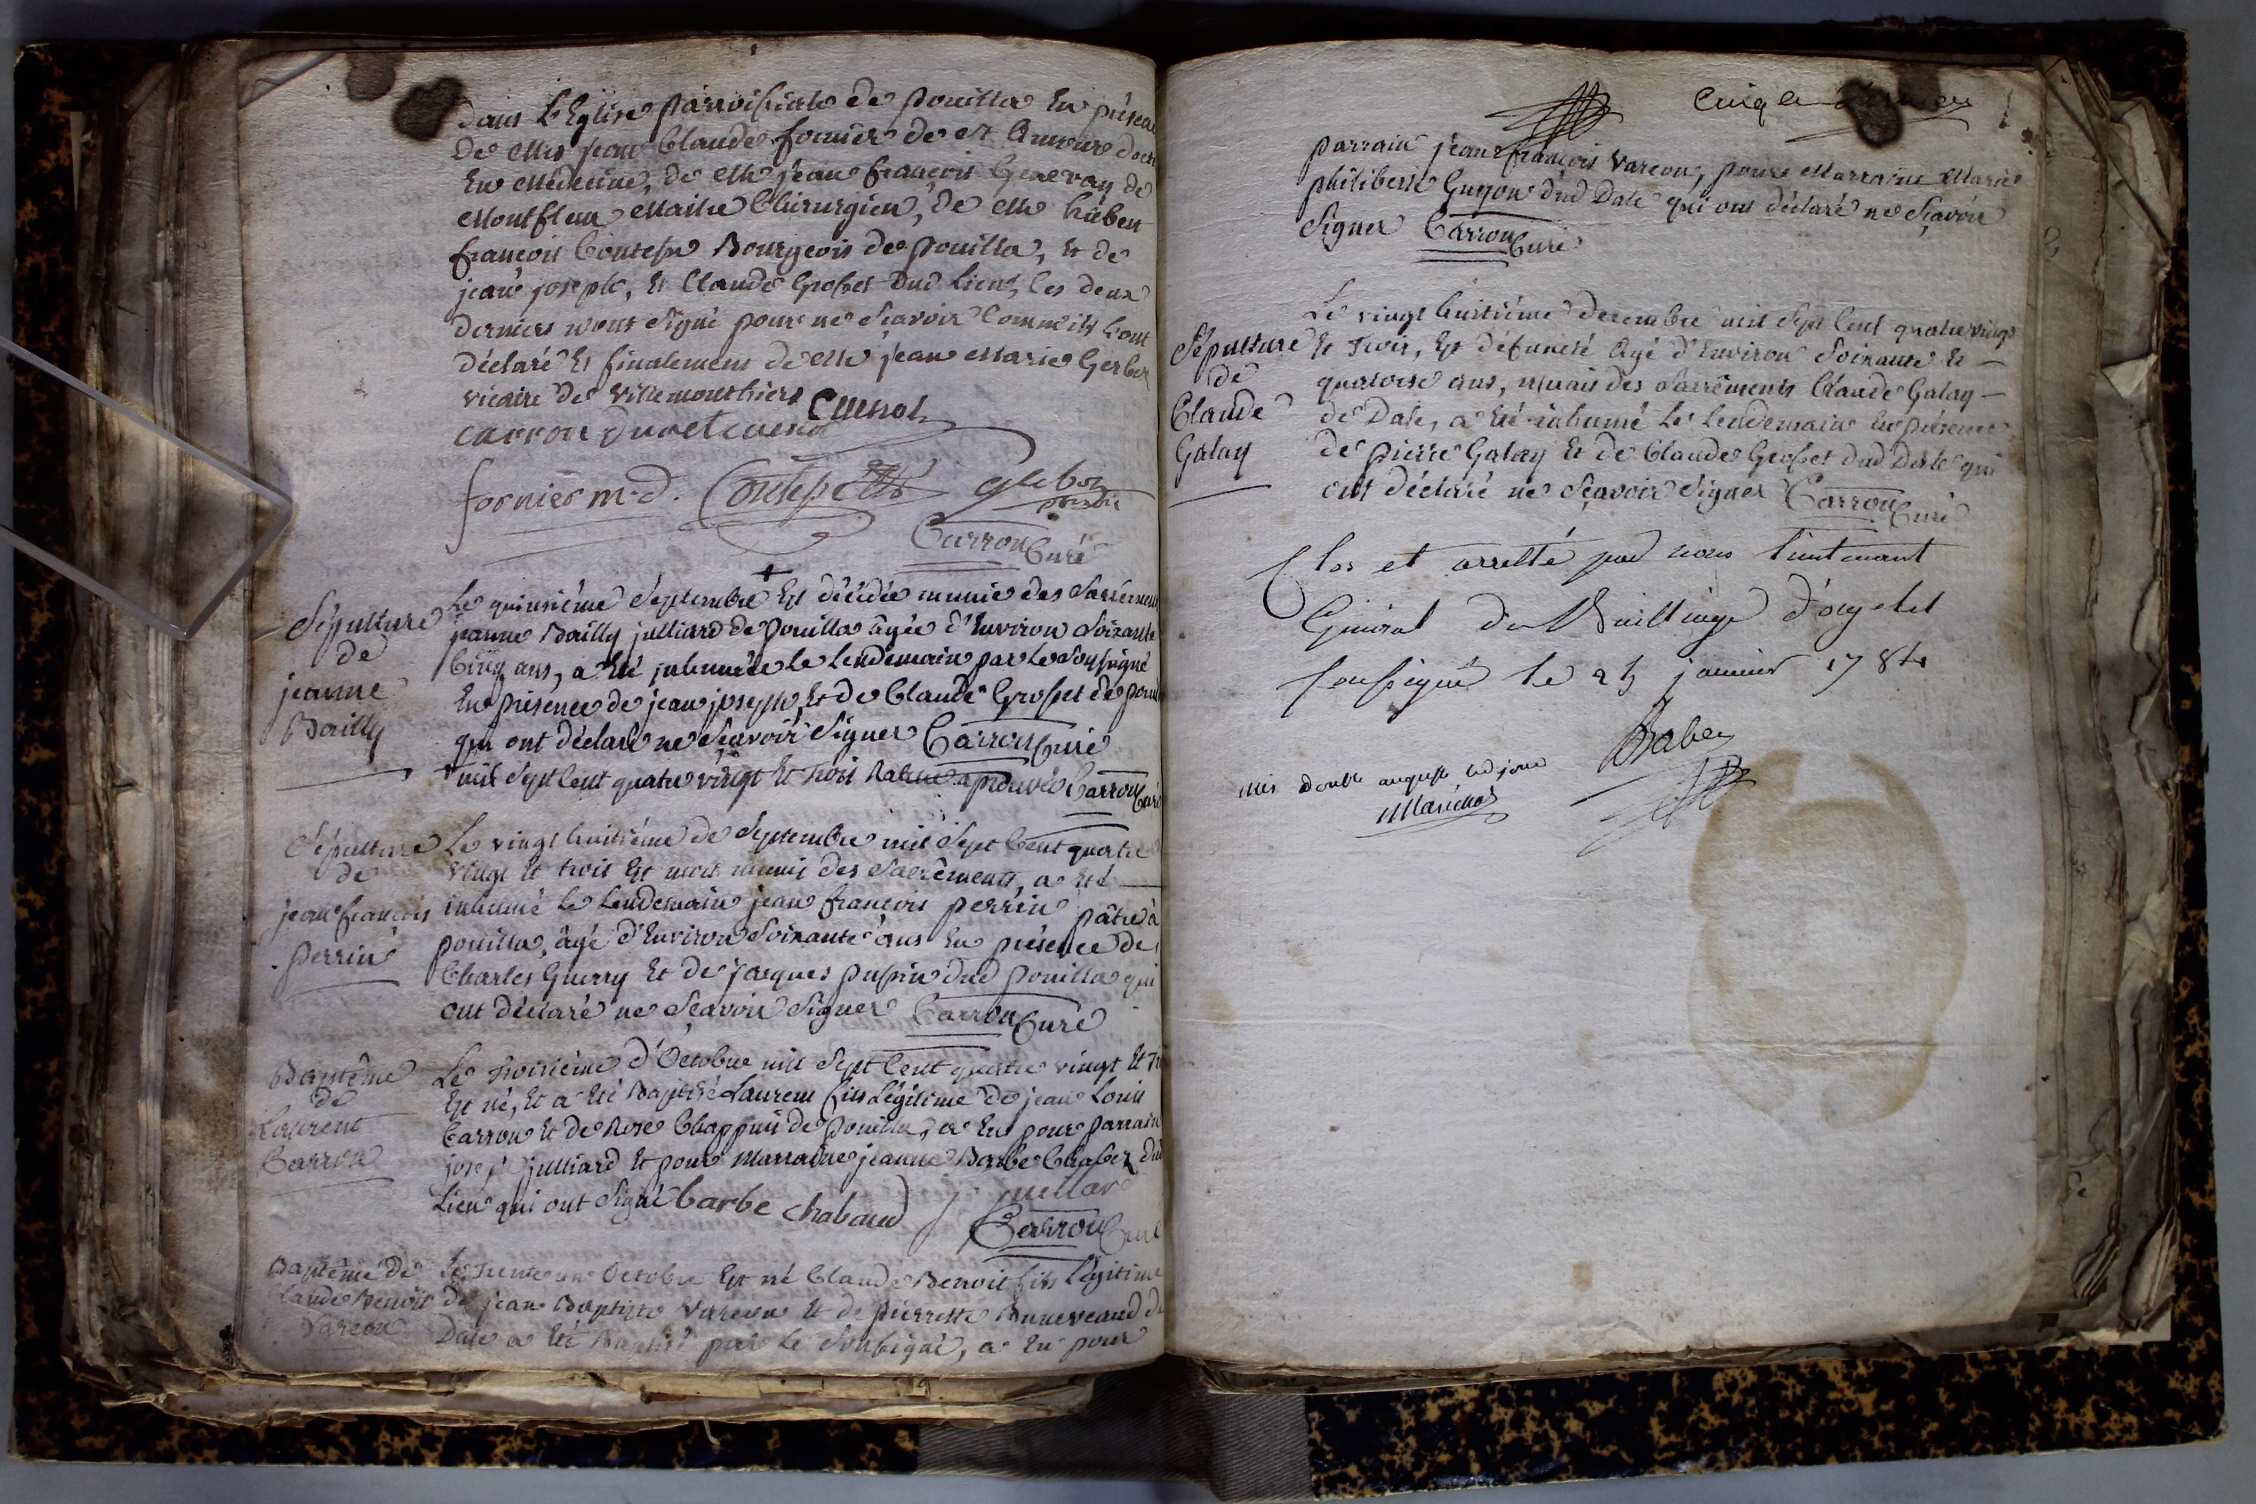 dans L'Eglise parroissiale de pouilla En présen
De Mrs jean Claude fornier de st Amour doct
En Médecine, de Mr jean françois Genevay de
Montfleur Maitre Chirurgien, de Mr
françois Contesse Bourgeois de pouilla, Et de
jean joseph, Et Claude Grosset dud Lieu, Les deux
derniers n'ont signé pour ne sçavoir comme ils L'ont
déclaré Et finalement de Mr jean Marie Gerbet
vicaire de Villemonthier Cuenot
carron
fornier m.d. Contesse
Carron Curé
Sépulture
de
jeanne
Bailly
Le quinsiéme septembre + Est décédée munie des sacrémens
jeanne Bailly julliard de pouilla âgée d'Environ soixante
Cinq ans, a Eté inhumée le Lendemain par Le soussigné
En présence de jean joseph, Et de Claude Grosset de pouil
qui ont déclaré ne sçavoir signer Carron Curé
+ mil sept Cent quatre vingt Et trois aprouvés Carron Curé
Sépulture
de
jean françois
perrin
Le vingt huitiéme de septembre mil sept Cent quatre
vingt Et trois Est mort muni des sacréments, a Eté
inhumé Le Lendemain jean françois perrin pâtre à
pouilla, âgé d'Environ soixante ans En présence de
Charles Guerry Et de jacques pussin dud pouilla qui
ont déclaré ne sçavoir signer Carron Curé
Baptême
de
Laurent
Carron
Le troisiéme d'Octobre mil sept Cent quatre vingt Et tr
Est né, Et a Eté Baptisé Laurent fils Légitime de jean Louis
Carron Et de Rose Chappuis de pouilla, a Eu pour parrain
josep julliard Et pour Marraine jeanne Barbe dud
Lieu qui ont signé barbe chabaud j juillard
Carron Curé
Baptême de
laude Benoit
Vareon
Le trente un Octobre Est né Claude Benoit fils Légitime
de jean Baptiste Vareon Et de pierrette de
Date a Eté Baptisé par Le soussigné, a Eu pour
parrain jean françois Vareon, pour Marraine Marie
philiberte Guyon dud Date qui ont déclaré ne sçavoir
signer Carron Curé
Sépulture
de
Claude
Galay
Le vingt huitiéme decembre mil sept Cent quatre vingt
Et trois, Est défuncté âgé d'Environ soixante Et
quatorse ans, muni des sacréments Claude Galay
de Date, a Eté inhumé Le Lendemain En présence
de pierre Galay Et de Claude Grosset dud Date qui
ont déclaré ne sçavoir signer Carron Curé
Clos et arretté par nous lieutenant
Général du Bailliage d'orgelet
soussigné le 25 janvier 1784
Babey
mis double au greffe led jour